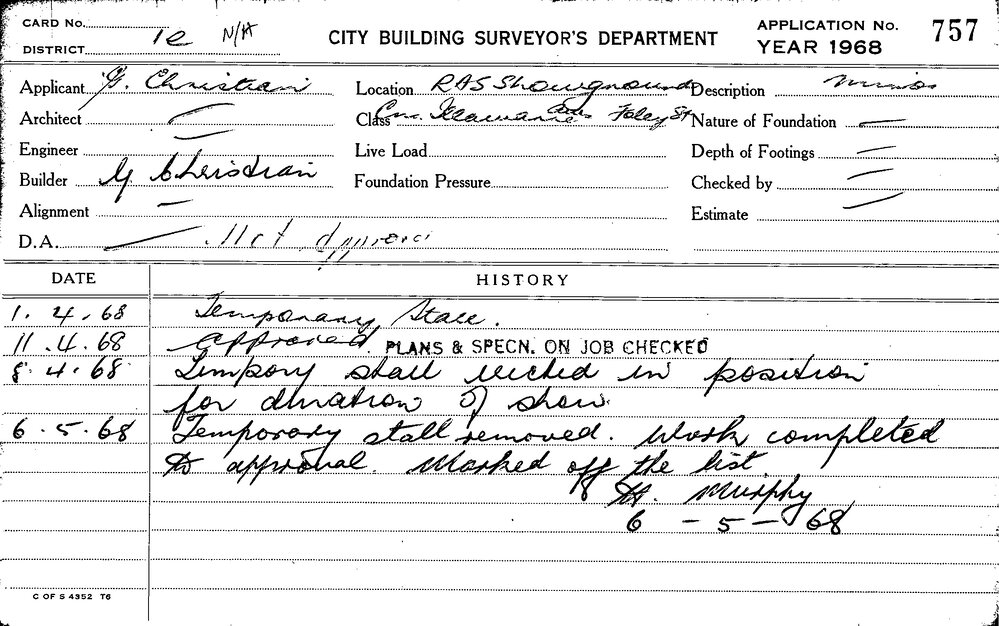 CARD No.
DISTRICT 1e N/A
CITY BUILDING SURVEYOR'S DEPARTMENT
APPLICATION No. 757
YEAR 1968
Applicant G. Christian
Location RAS Showgrounds
Description Minor
Architect —
Class Cnr. Illawarra Foley St
Nature of Foundation —
Engineer
Live Load
Depth of Footings —
Builder G Christian
Foundation Pressure
Checked by —
Alignment —
Estimate —
D.A. — Not approved
DATE HISTORY
1. 4. 68 Temporary Stall.
11. 4. 68 Approved. PLANS & SPECN. ON JOB CHECKED
8. 4. 68. Tempory stall erected in position
for duration of show.
6. 5. 68 Temporary stall removed. Work completed
to approval. Marked off the list.
H. Murphy
6 - 5 - 68
C OF S 4352 T6